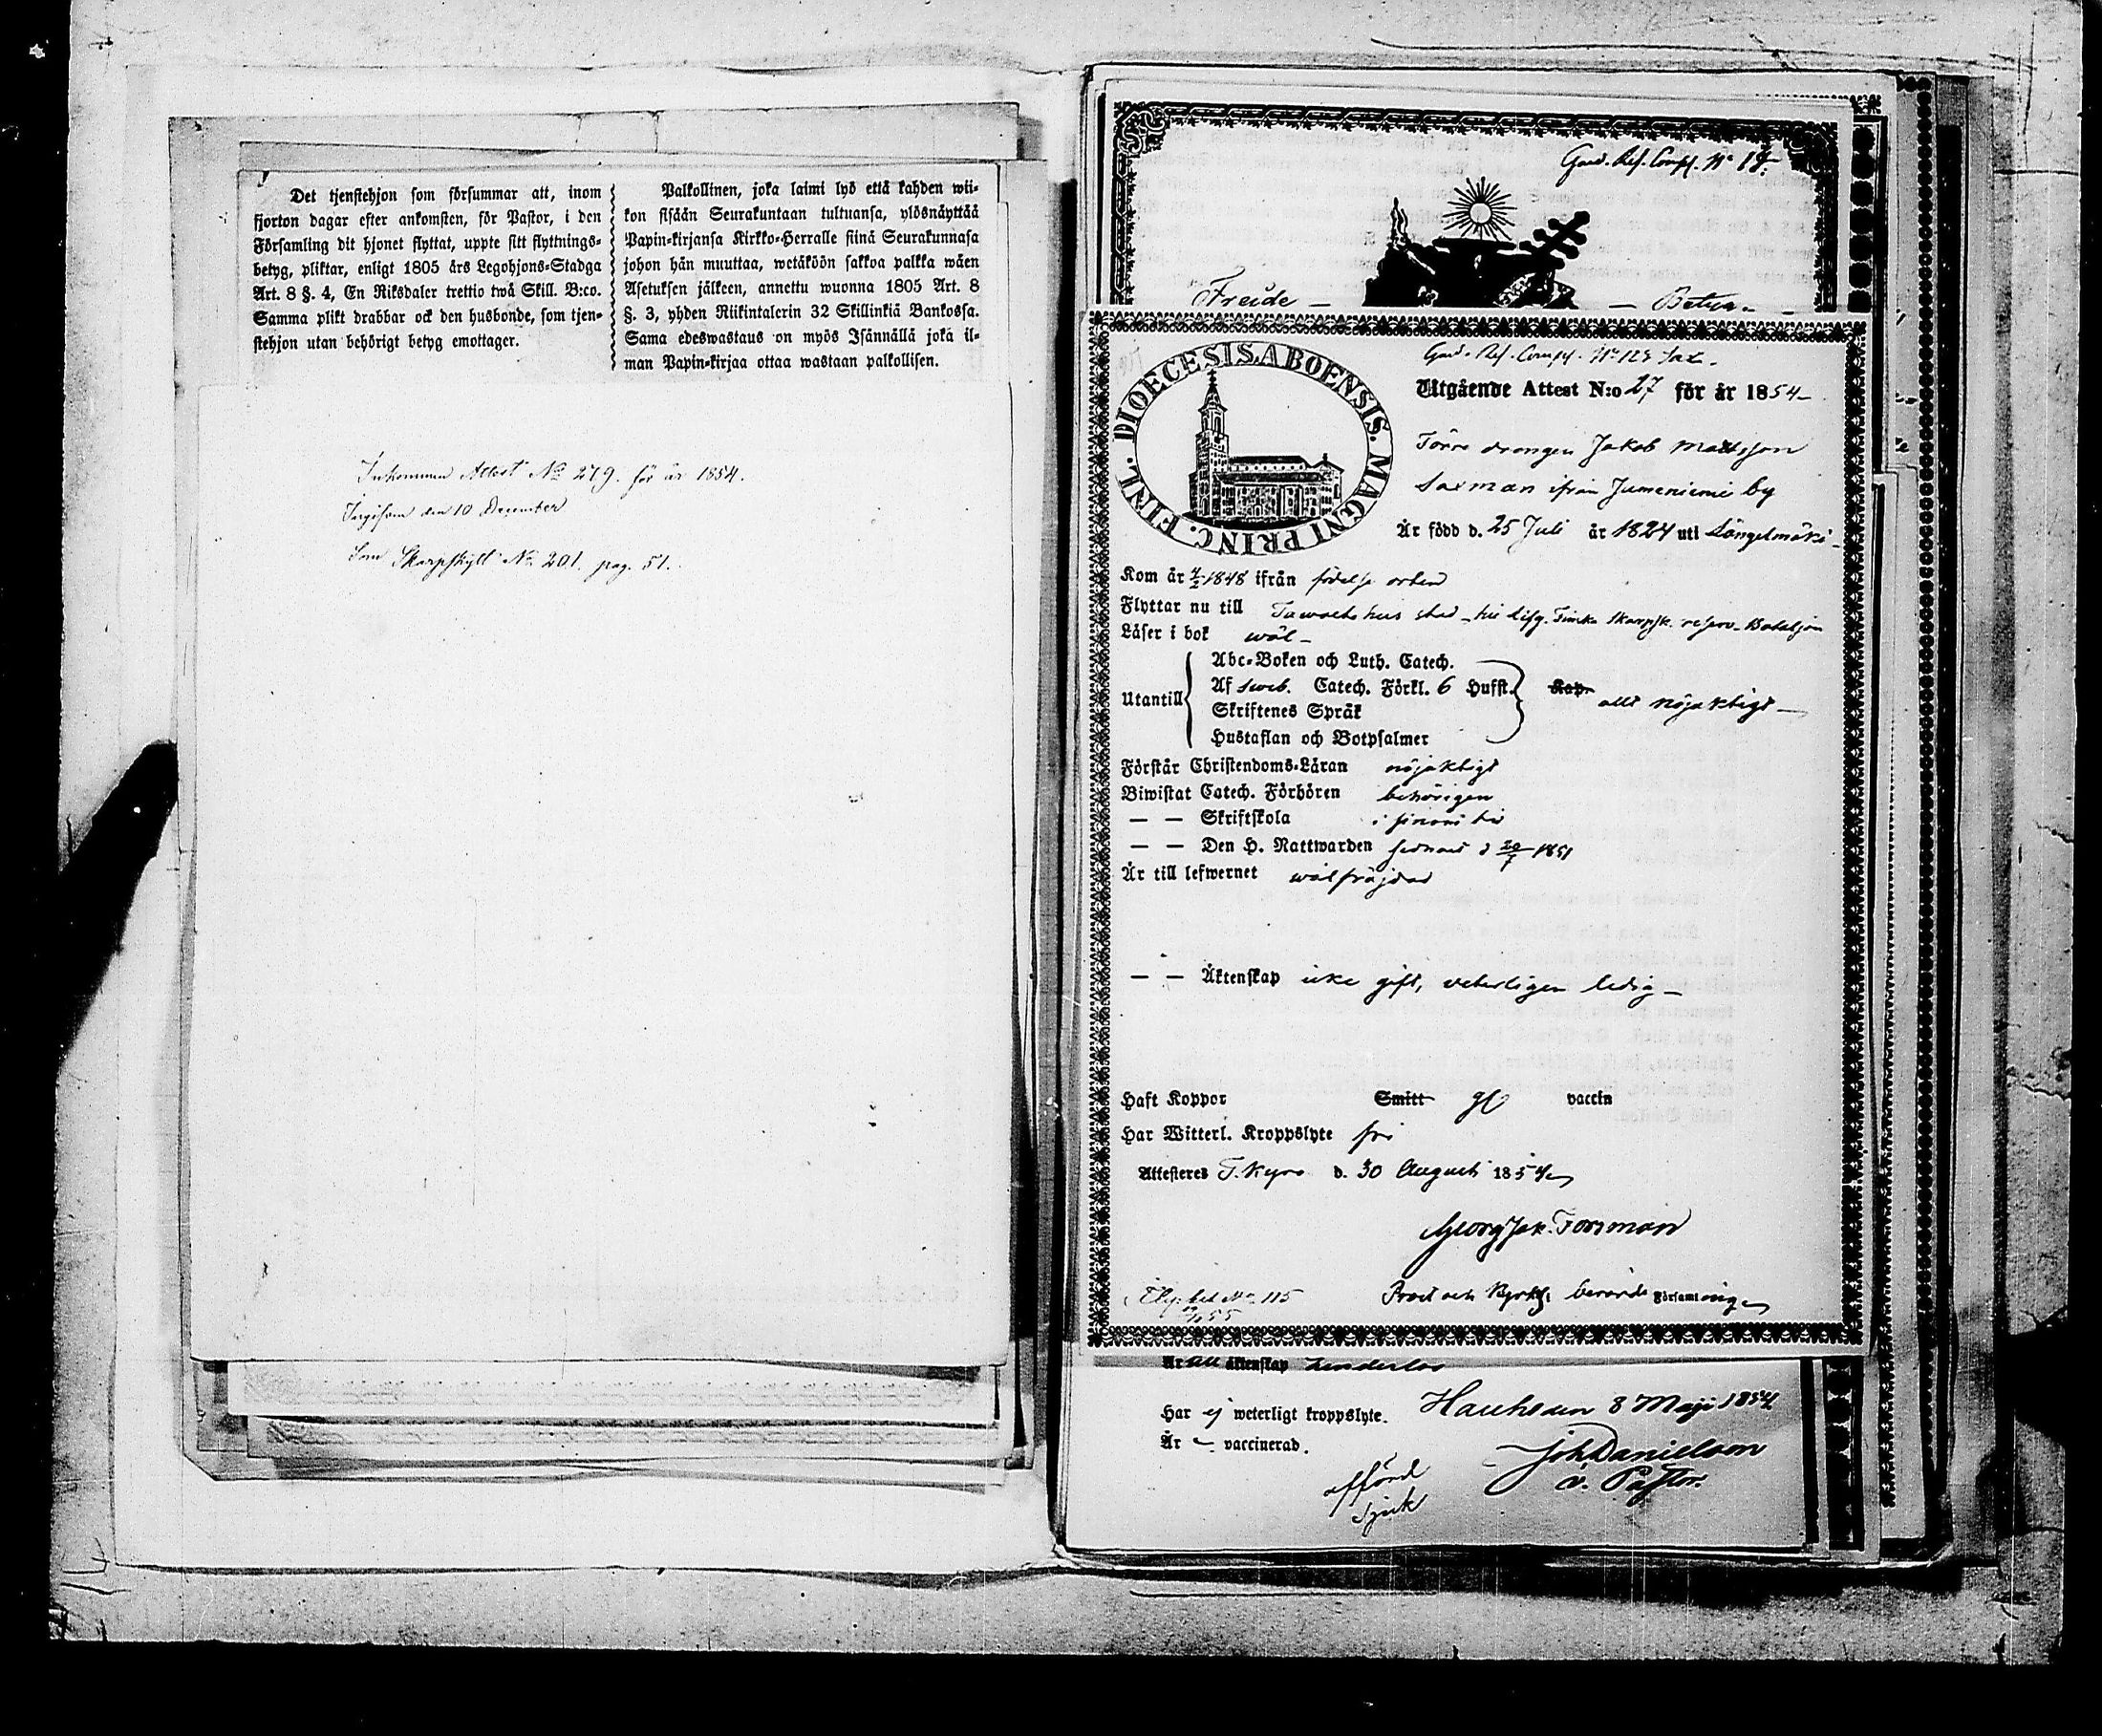 Det tjenstehjon som försummar att, inom
fjorton dagar efter ankomsten, för Pastor, i den
Församling dit hjonet flyttat, uppte sitt flyttnings-
betyg, pliktar, enligt 1805 års Legohjons-Stadga
Art. 8 §. 4, En Riksdaler trettio twå Skill. B:co.
Samma plikt drabbar ock den husbonde, som tjen-
stehjon utan behörigt betyg emottager.
Palkollinen, joka laimi lyö että kahden wii-
kon sisään Seurakuntaan tultuansa, ylösnäyttää
Papin-kirjansa Kirkko-Herralle siinä Seurakunnasa
johon hän muuttaa, wetäköön sakkoa palkka wäen
Asetuksen jälkeen, annettu wuonna 1805 Art. 8
§. 3, yhden Riikintalerin 32 Skillinkiä Bankossa.
Sama edeswastaus on myös Isännällä joka il-
man Papin-kirjaa ottaa wastaan palkollisen.
Inkommen Attest No 279. för år 1854.
den 10 December
Som Skarpskytt No 201. pag. 51.
Gard. Res. Comp. No
Freide — — Betyg
DIOECESIS ABOENSIS. MAGNI PRINC. FINL.
Gard. Res. Comp. No
Utgående Attest N:o 27 för år 1854
drengen Jakob Mattsson
Saxman ifrån Jumeniemi by
Är född d. 25 Juli år 1824 uti Längelmäki
Kom år 1848 ifrån födelse orten
Flyttar nu till Tawastehus stad
Läser i bok wäl
Abc-Boken och Luth. Catech.
Utantill Af sweb. Catech. Förkl. 6 Hufst. Kap. allt nöjaktigt
Skriftenes Språk
Hustaflan och Botpsalmer
Förstår Christendoms-Läran nöjaktigt
Biwistat Catech. Förhören behörigen
— — Skriftskola i sinom tid
— — Den H. Nattwarden sednast d 20/7 1851
Är till lefwernet wälfräjdad
— — Äktenskap icke gift, veterligen ledig
Haft Koppor Smitt vaccin
Har Witterl. Kroppslyte fri
Attesteres T. Kyro d. 30 Augusti 1854
Georg Jak. Forsman
Prost och Kyrkh. berörde Församling
Är till äktenskap hinderlös
Har ej weterligt kroppslyte. Hauho den 8 Maji 1854
Är vaccinerad. Joh Danielson
v. Pastor.
afförd
sjuk